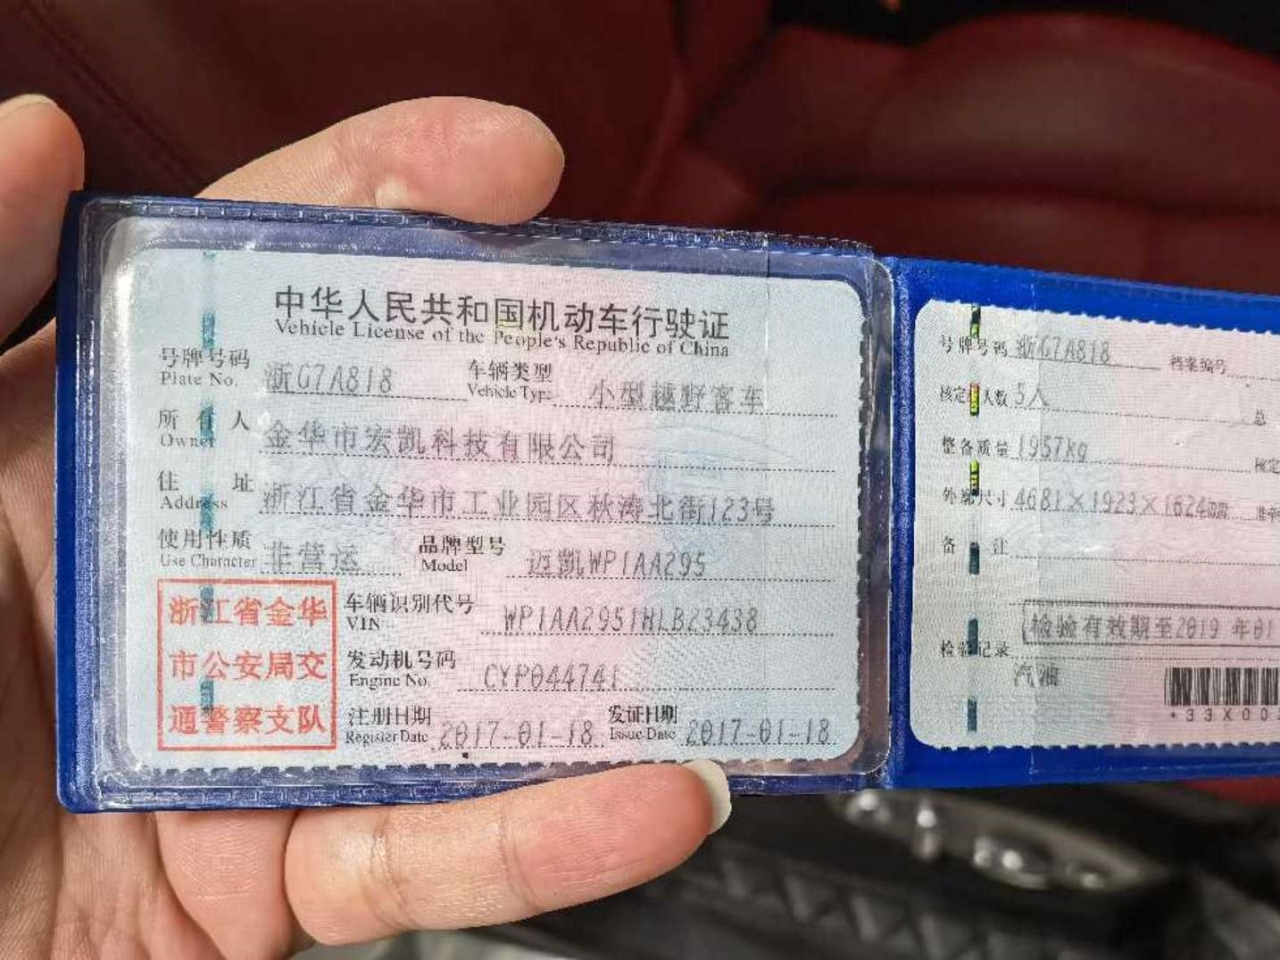 中华人民共和国机动车行驶证
Vehicle License of the People's Republic of China
号牌号码 浙G7A818 车辆类型 小型越野客车
Plate No. Vehicle Type
所有人 金华市宏凯科技有限公司
Owner
住址 浙江省金华市工业园区秋涛北街123号
Address
使用性质 非营运 品牌型号 迈凯WP1AA295
Use Character Model
浙江省金华
市公安局交
通警察支队
车辆识别代号 WP1AA2951HLB23438
VIN
发动机号码 CYP044741
Engine No.
注册日期 2017-01-18 发证日期 2017-01-18
Register Date Issue Date
号牌号码 浙G7A818 档案编号
核定 人数 5人
总
整备质量 1957kg 核定
外廓尺寸 4681×1923×1624mm
备注
检验有效期至2019年01
检验记录
汽油
*33X00